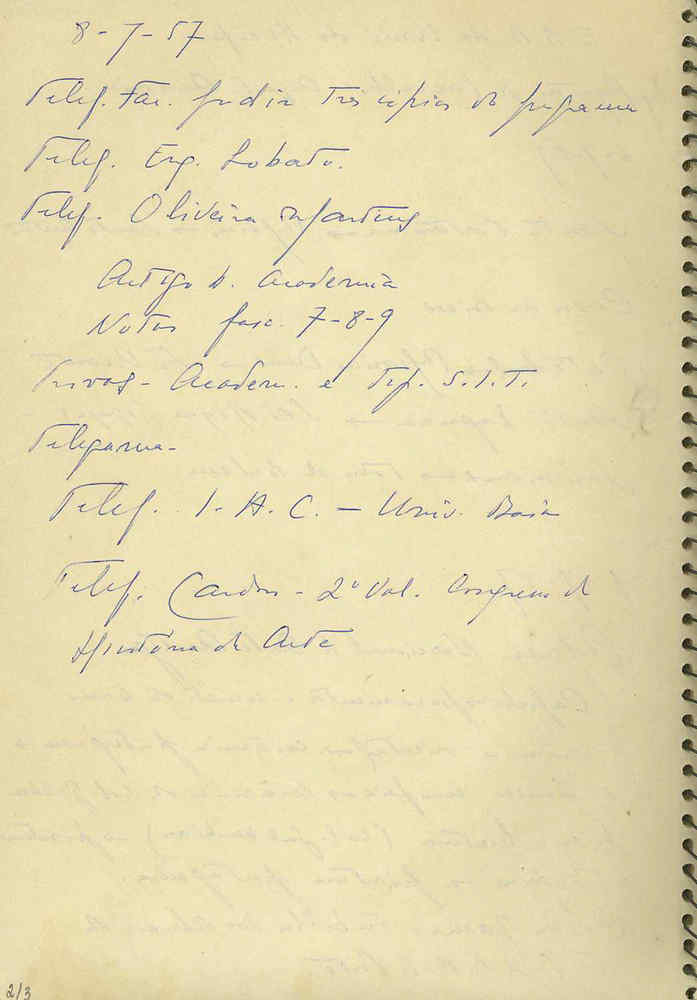 8-7-57
Telef. Fac. pedir três cópias do programa
Telef. Eng. Lobato.
Telef. Oliveira Martins
Artigo p. Academia
Notas fasc. 7-8-9
Provas - Academ. e Tip. S.I.T.
Telegrama -
Telef. I. A. C. - Univ. Baía
Telef. Cardoso - 2º Vol. Congresso de
História de Arte
2/3